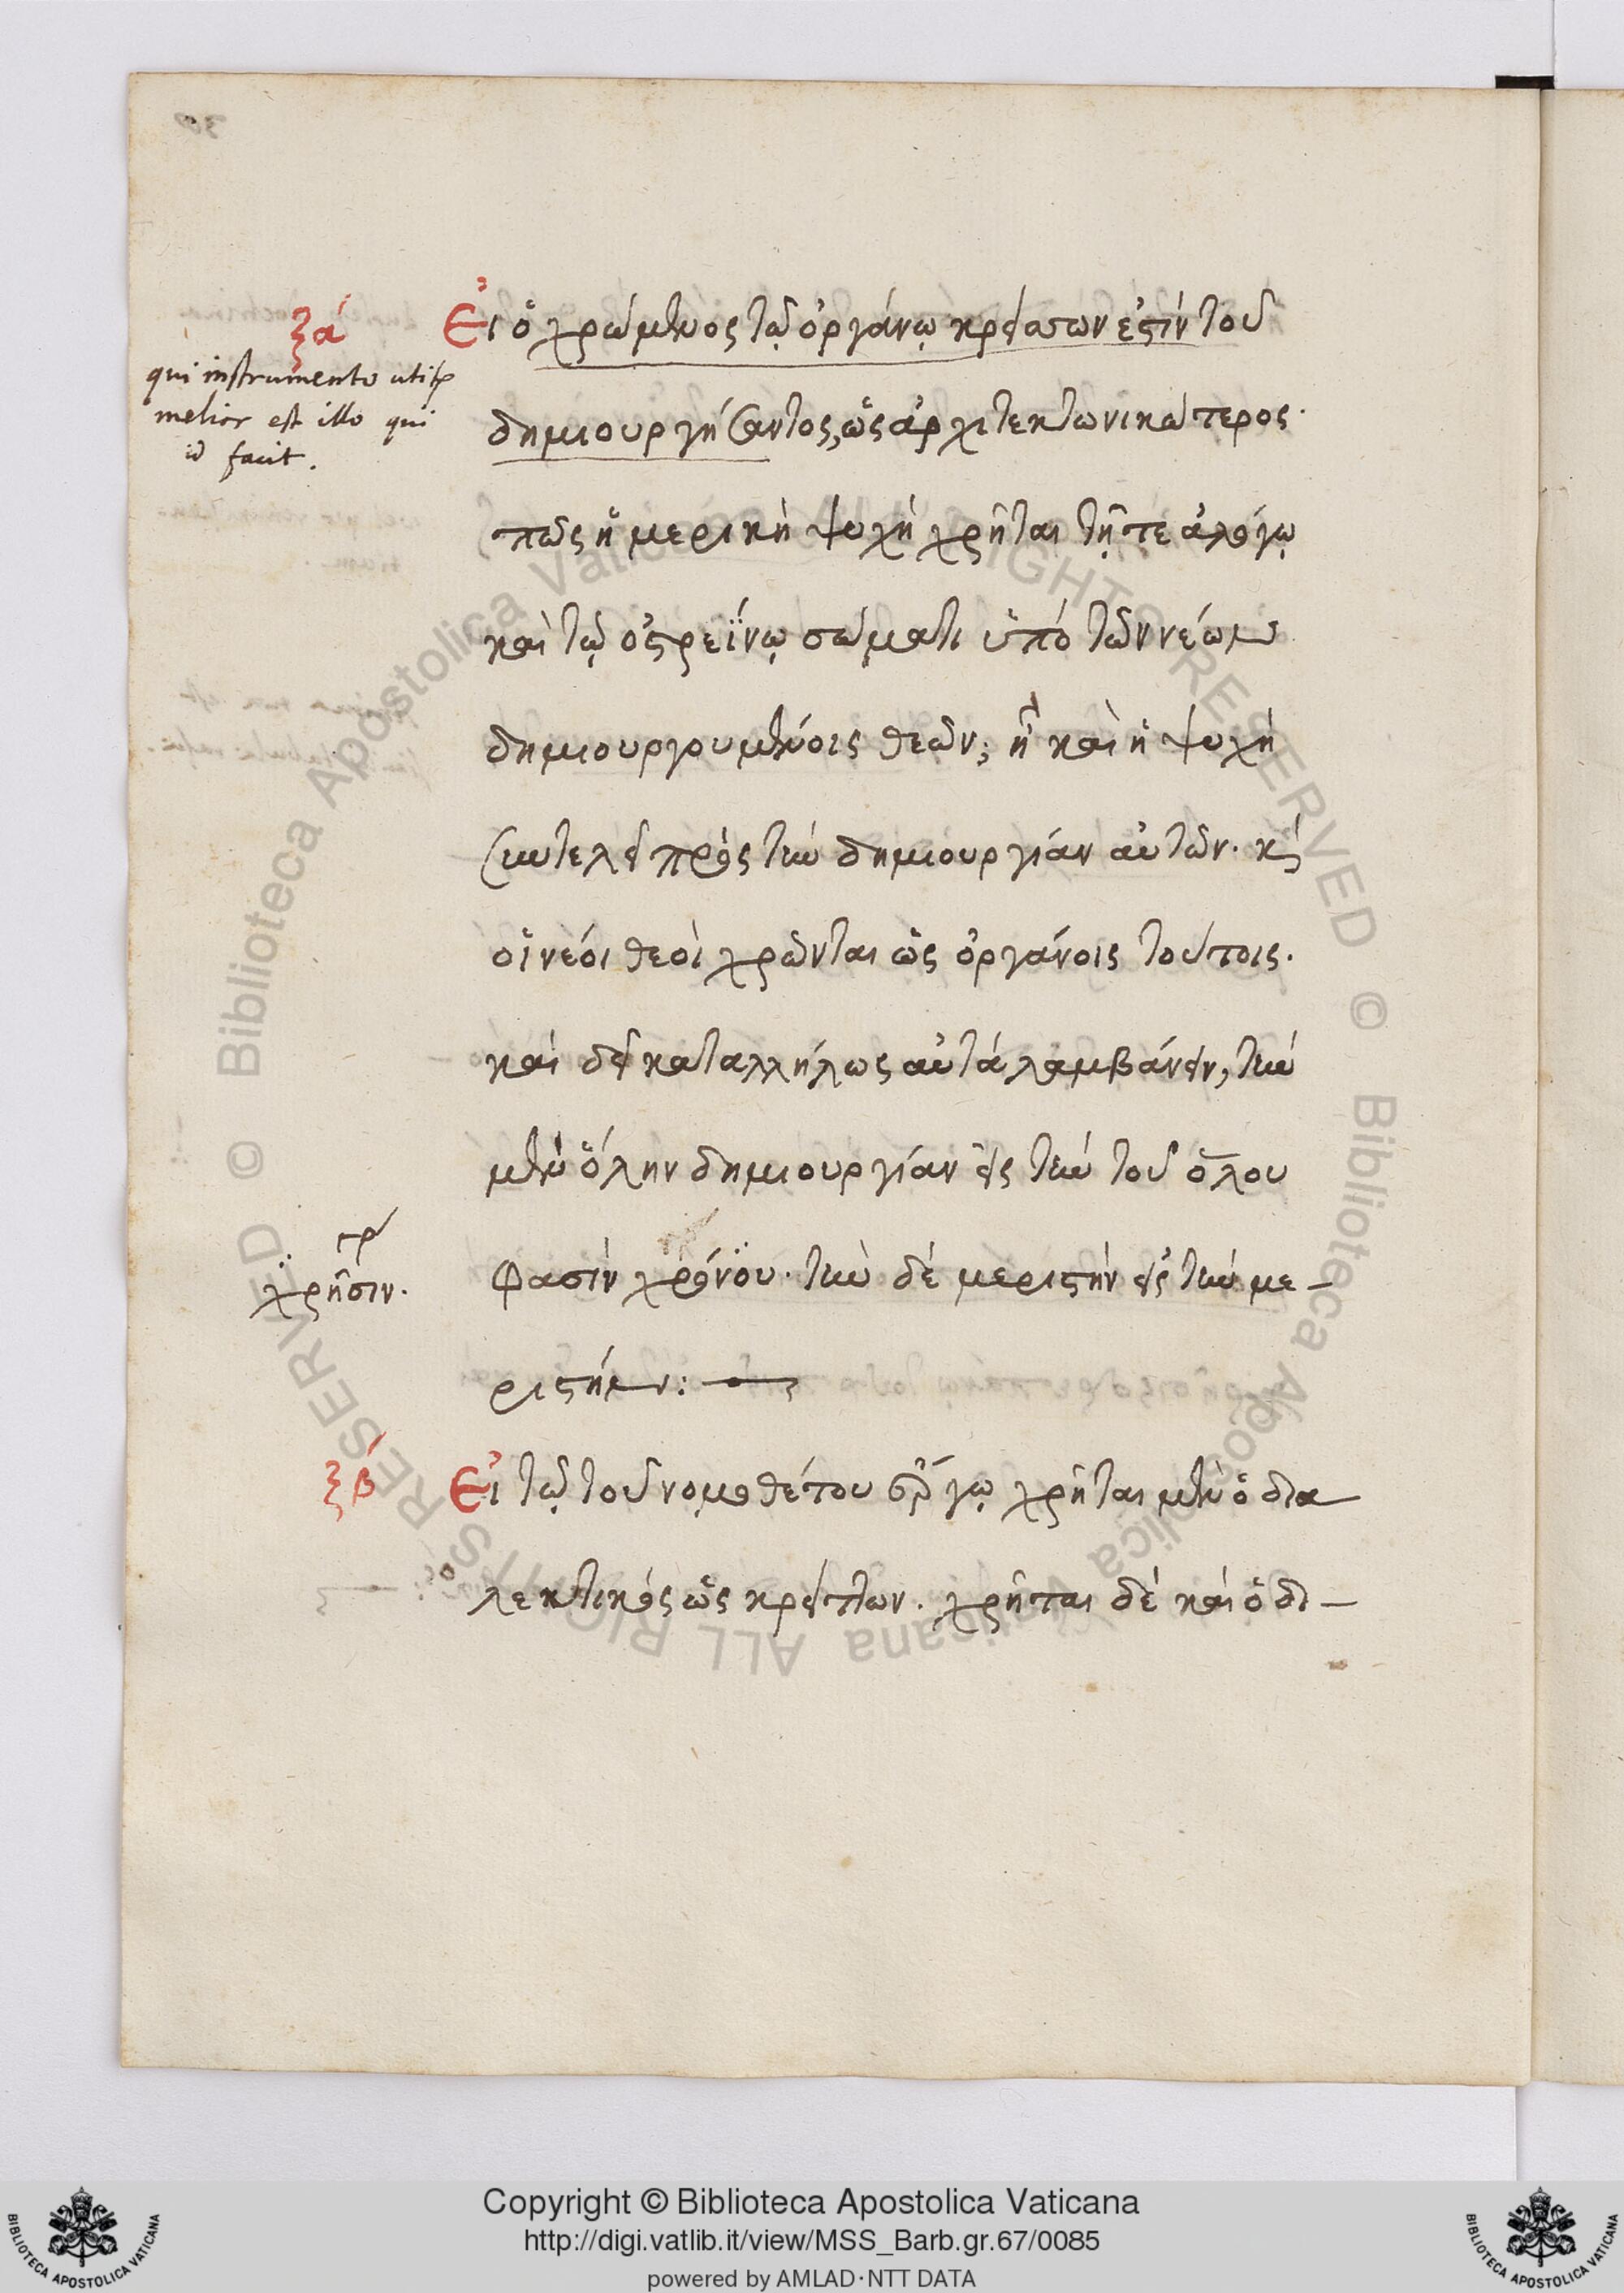 ξα´
qui instrumento utitur
melior est illo qui
id facit.
Εἰ ὁ χρώμενος τῷ ὀργάνῳ κρείσσων ἐστὶν τοῦ
δημιουργήσαντος, ὡς ἀρχιτεκτωνικώτερος·
πῶς ἡ μερικὴ ψυχὴ χρῆται τῇ τε ἀλόγῳ
καὶ τῷ ὀστρεΐνῳ σώματι ὑπὸ τῶν νέων
δημιουργουμένοις θεῶν; ἢ καὶ ἡ ψυχὴ
συντελεῖ πρὸς τὴν δημιουργίαν αὐτῶν. καὶ
οἱ νέοι θεοὶ χρῶνται ὡς ὀργάνοις τούτοις.
καὶ δεῖ καταλλήλως αὐτὰ λαμβάνειν, τὴν
μὲν ὅλην δημιουργίαν εἰς τὴν τοῦ ὅλου
φασὶν χρόνου· τὴν δὲ μεριστὴν εἰς τὴν με-
γρ
χρῆσιν.
ριστήν:
ξβ´
Εἰ τῷ τοῦ νομοθέτου ἔργῳ χρῆται μὲν ὁ δια
λεκτικὸς ὡς κρείττων. χρῆται δὲ καὶ ὁ δι-
Copyright © Biblioteca Apostolica Vaticana
http://digi.vatlib.it/view/MSS_Barb.gr.67/0085
powered by AMLAD·NTT DATA
BIBLIOTECA APOSTOLICA VATICANA
BIBLIOTECA APOSTOLICA VATICANA
© Biblioteca Apostolica Vaticana ALL RIGHTS RESERVED
© Biblioteca Apostolica Vaticana ALL RIGHTS RESERVED